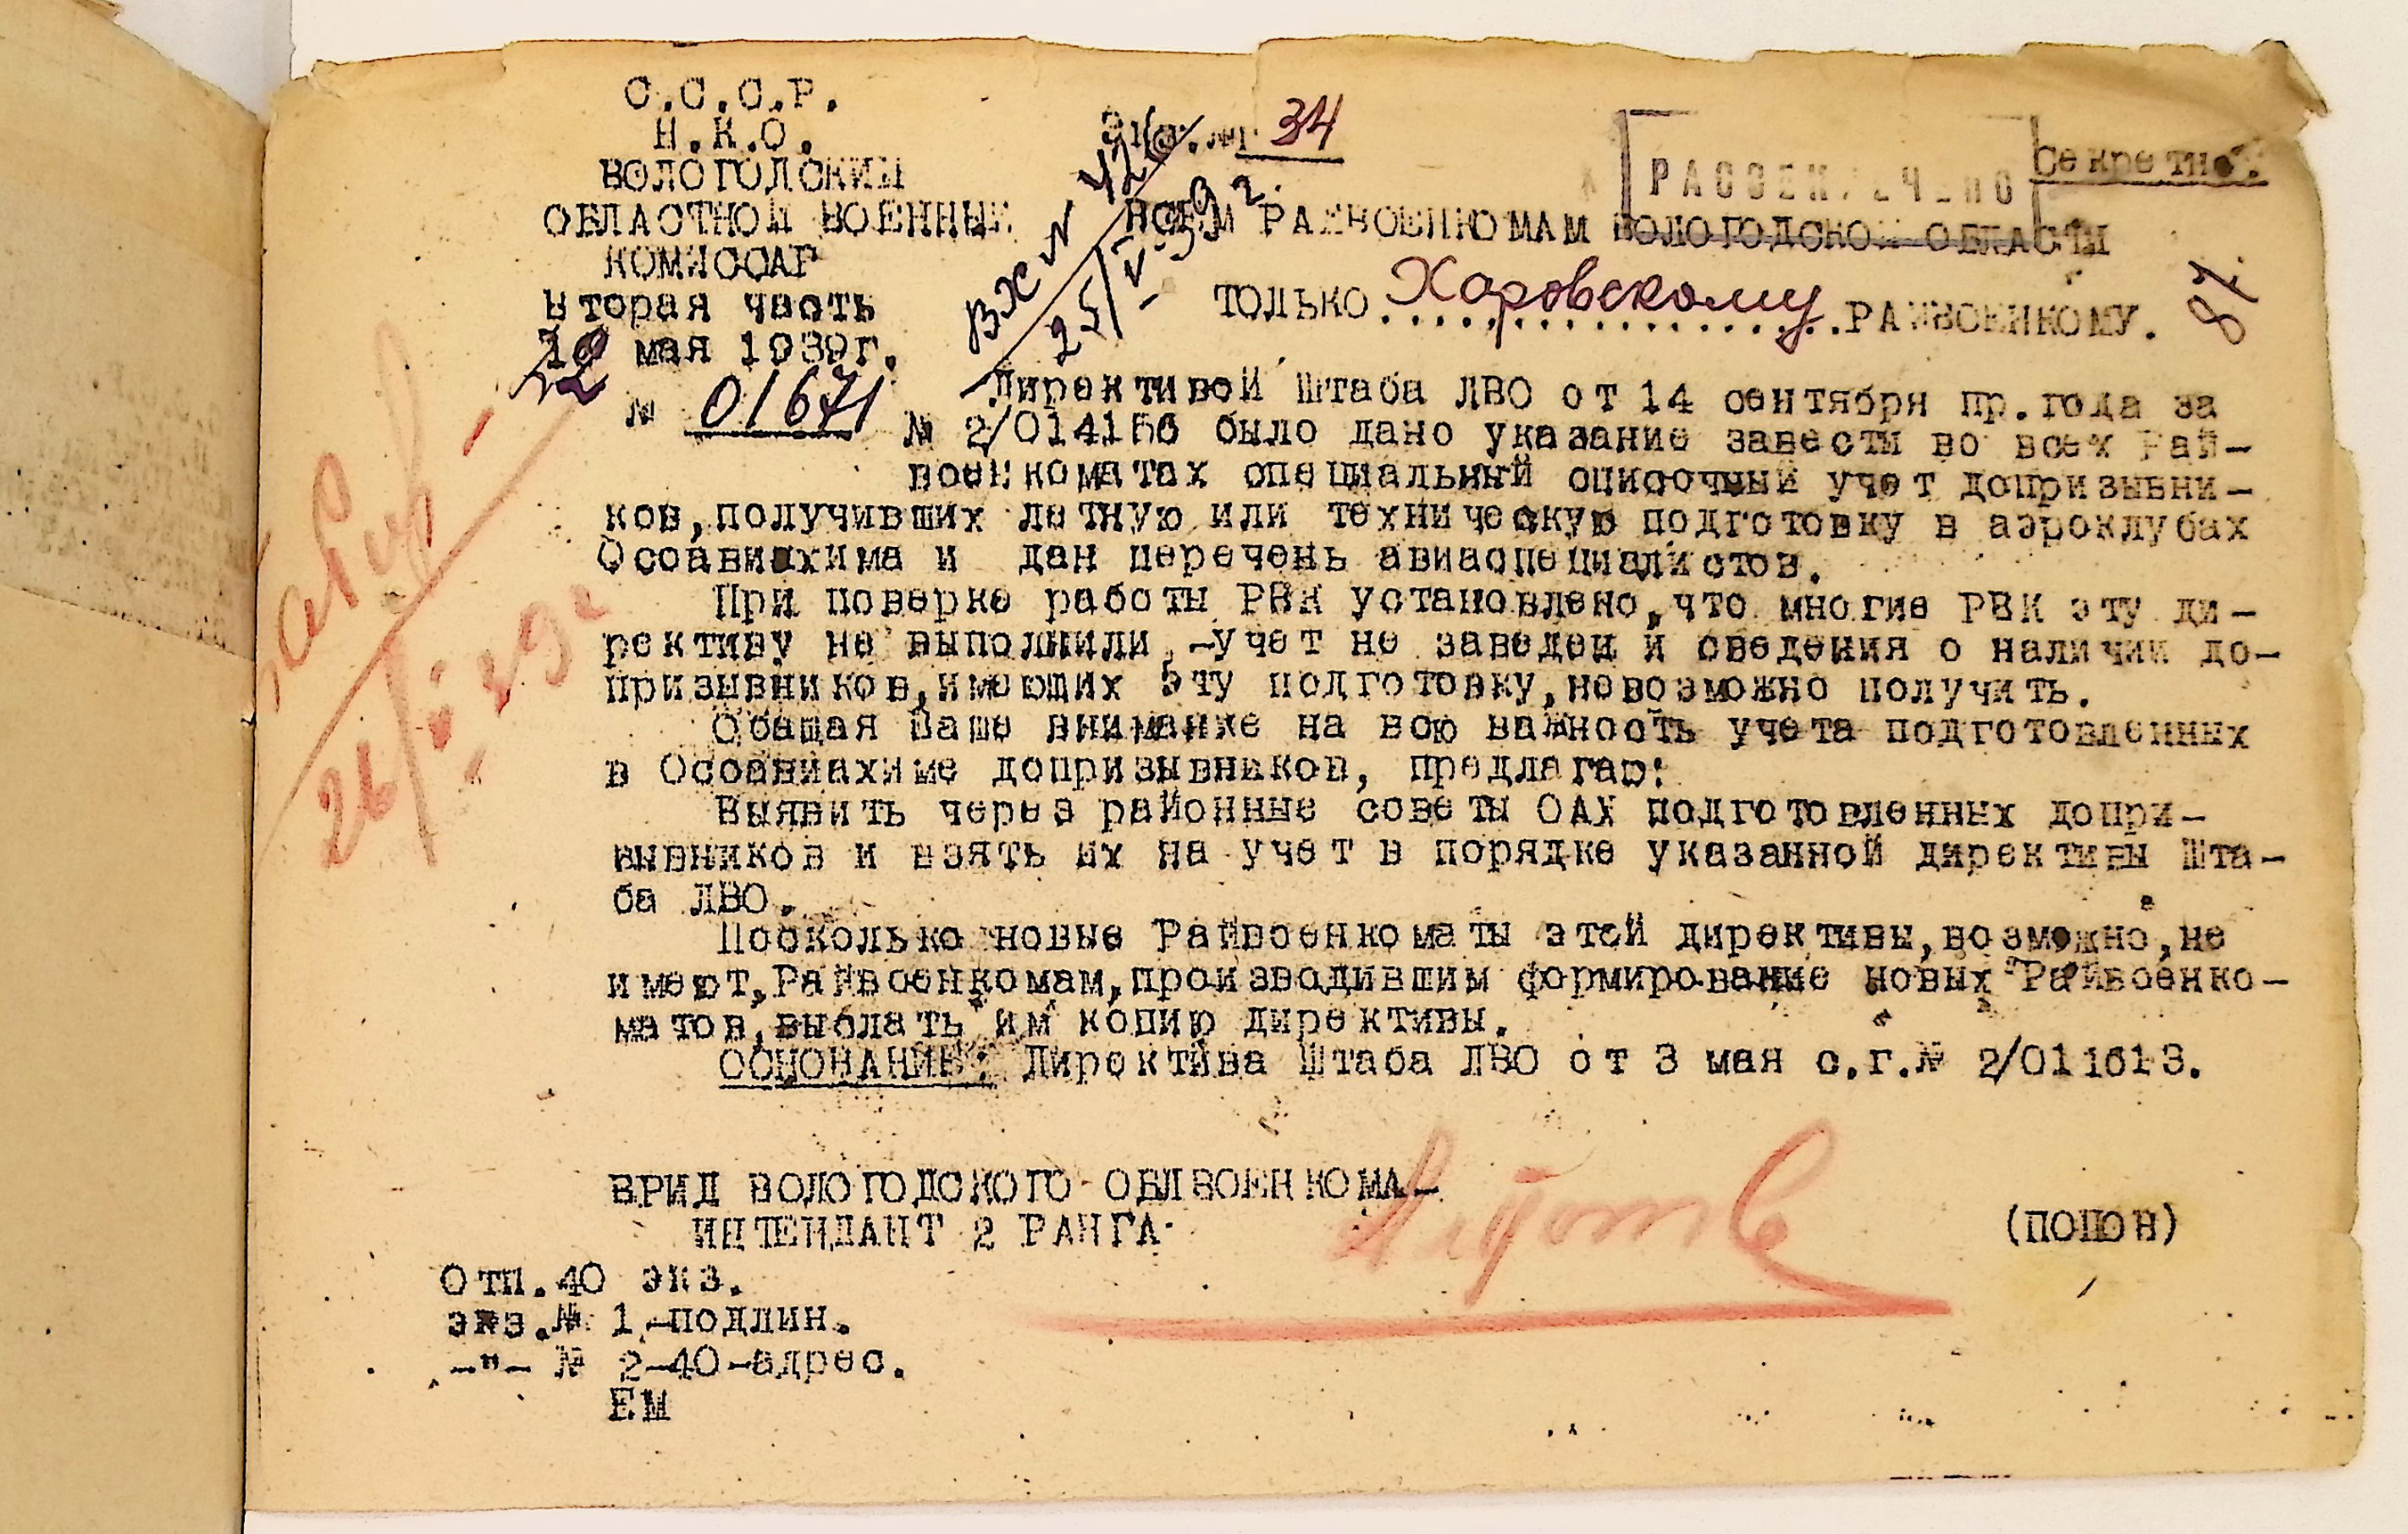 С.С.С.Р.
Н.К.О.
ВОЛОГОДСКИЙ
ОБЛАСТНОЙ ВОЕННЫЙ
КОМИССАР
Вторая часть
мая 1939г.
№ 01671
Экз. № 34
Вх №
25/V-39 г.
РАССЕКРЕЧЕНО
Секретно.
ВСЕМ РАЙВОЕНКОМАМ ВОЛОГОДСКОЙ ОБЛАСТИ
ТОЛЬКО Харовскому РАЙВОЕНКОМУ.
87.
Директивой Штаба ЛВО от 14 сентября пр.года за
№ 2/014156 было дано указание завести во всех Рай-
военкоматах специальный списочный учет допризывни-
ков,получивших летную или техническую подготовку в аэроклубах
Осоавиахима и дан перечень авиаспециалистов.
При поверке работы РВК установлено,что многие РВК эту ди-
рективу не выполнили,-учет не заведен и сведения о наличии до-
призывников,имеющих эту подготовку,невозможно получить.
Обащая Ваше внимание на всю важность учета подготовленных
в Осоавиахиме допризывников, предлагаю:
Выявить через районные советы ОАХ подготовленных допри-
вывников и взять их на учет в порядке указанной директивы Шта-
ба ЛВО.
Поскольку новые Райвоенкоматы этой директивы,возможно,не
имеют,Райвоенкомам,производившим формирование новых Райвоенко-
матов,выслать им копию директивы.
ОСНОВАНИЕ: Директива Штаба ЛВО от 3 мая с.г.№ 2/011613.
ВРИД ВОЛОГОДСКОГО ОБЛВОЕНКОМА-
ИНТЕНДАНТ 2 РАНГА
(ПОПОВ)
Отп.40 экз.
экз.№ 1-подлин.
-"- № 2-40-адрес.
ЕМ